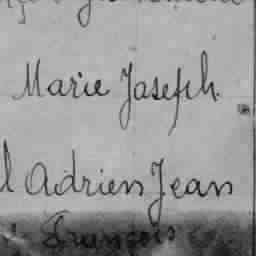 Marie Joseph.
Adrien Jean
François